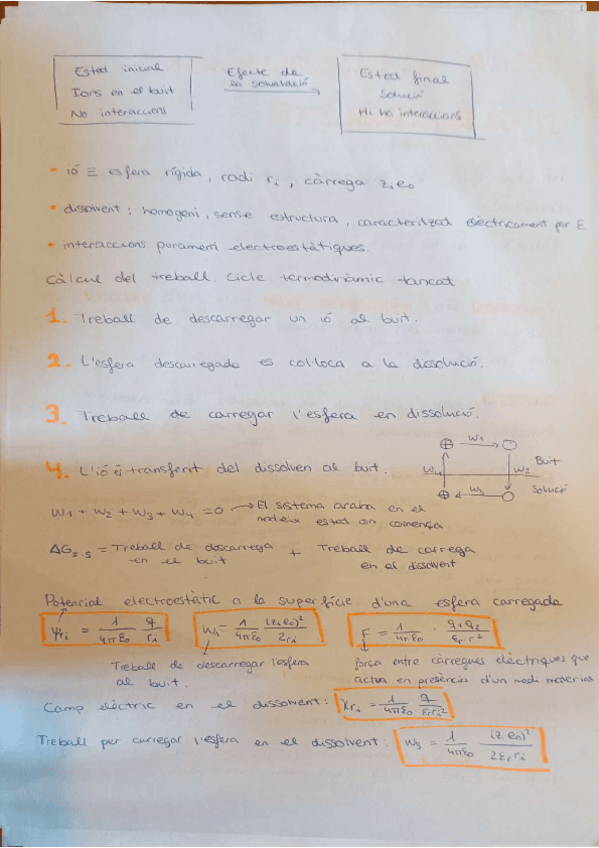 Estat inicial
Ions en el buit
No interaccions
Efecte de
la solvatació
Estat final
Solució
Hi ha interaccions
• ió ≡ esfera rígida, radi rᵢ, càrrega zᵢe₀
• dissolvent: homogeni, sense estructura, caracteritzat elèctricament per ε
• interaccions purament electroestàtiques.
Càlcul del treball. Cicle termodinàmic tancat
1. Treball de descarregar un ió al buit.
2. L'esfera descarregada es col·loca a la dissolució.
3. Treball de carregar l'esfera en dissolució.
4. L'ió és transferit del dissolven al buit.
⊕ W₁ → ○
W₄ W₂ Buit
Solució
⊕ ← W₃ ○
W₁ + W₂ + W₃ + W₄ = 0 → El sistema acaba en el
mateix estat on comença
ΔG₌.ₛ = Treball de descarrega + Treball de carrega
en el buit en el dissolvent
Potencial electroestàtic a la superfície d'una esfera carregada
ψrᵢ = 1/4πε₀ q/rᵢ W₁ = 1/4πε₀ (zᵢe₀)²/2rᵢ F = 1/4πε₀ · q₁·q₂/εᵣ·r²
Treball de descarregar l'esfera
al buit.
força entre càrregues elèctriques que
actua en presència d'un medi material
Camp elèctric en el dissolvent: Xrᵢ = 1/4πε₀ q/εᵣrᵢ²
Treball per carregar l'esfera en el dissolvent: W₃ = 1/4πε₀ (zᵢe₀)²/2εᵣrᵢ